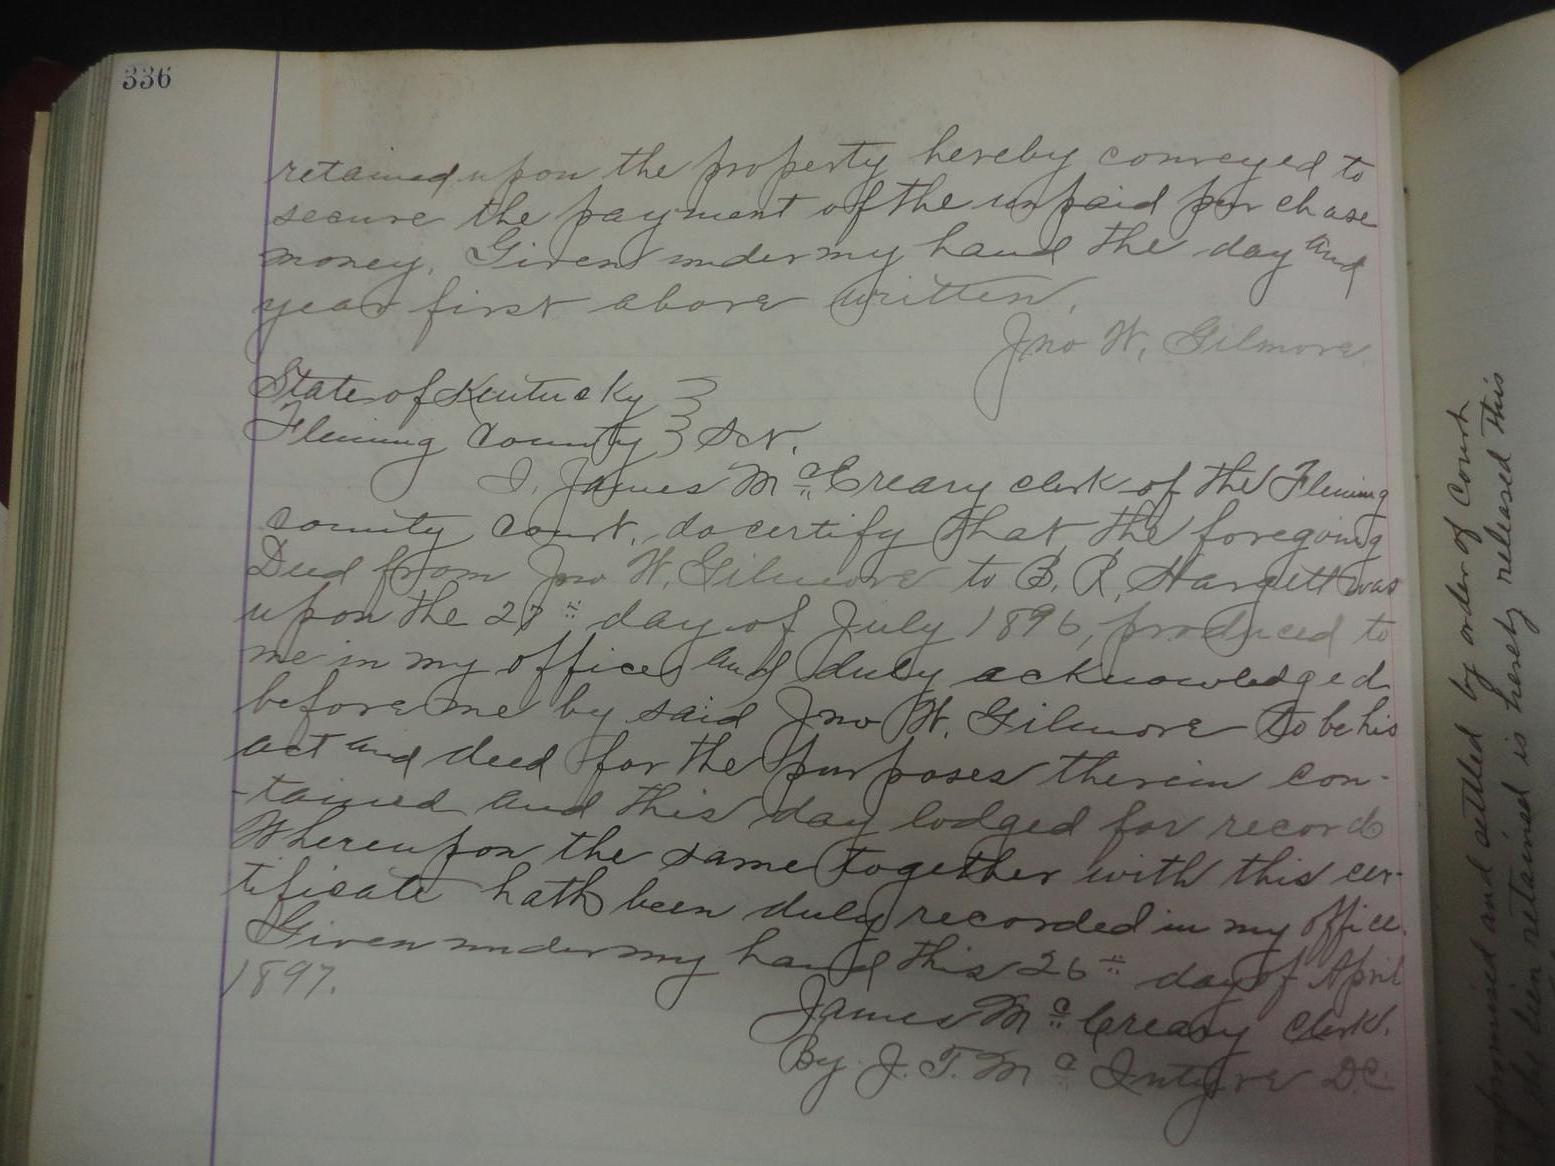 336
retained upon the property hereby conveyed to
secure the payment of the unpaid purchase
money. Given under my hand the day and
year first above written.
Jno W. Gilmore
State of Kentucky }
Fleming County } Sct.
I, James McCreary clerk of the Fleming
County Court, do certify that the foregoing
Deed from Jno W. Gilmore to B. R. Hargett was
upon the 27th day of July 1896, produced to
me in my office and duly acknowledged
before me by said Jno W. Gilmore to be his
act and deed for the purposes therein con-
-tained and this day lodged for record
Whereupon the same together with this cer-
tificate hath been duly recorded in my office.
Given under my hand this 26th day of April
1897.
James McCreary Clerk.
By J. T. McIntyre D.C.
and settled by order of Court
lien retained is hereby released this